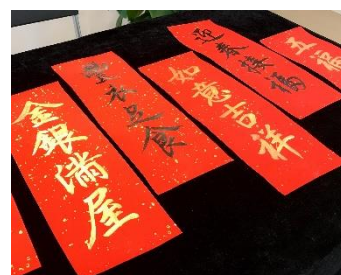 金銀滿屋
豐衣足食
如意吉祥
迎春接福
五福